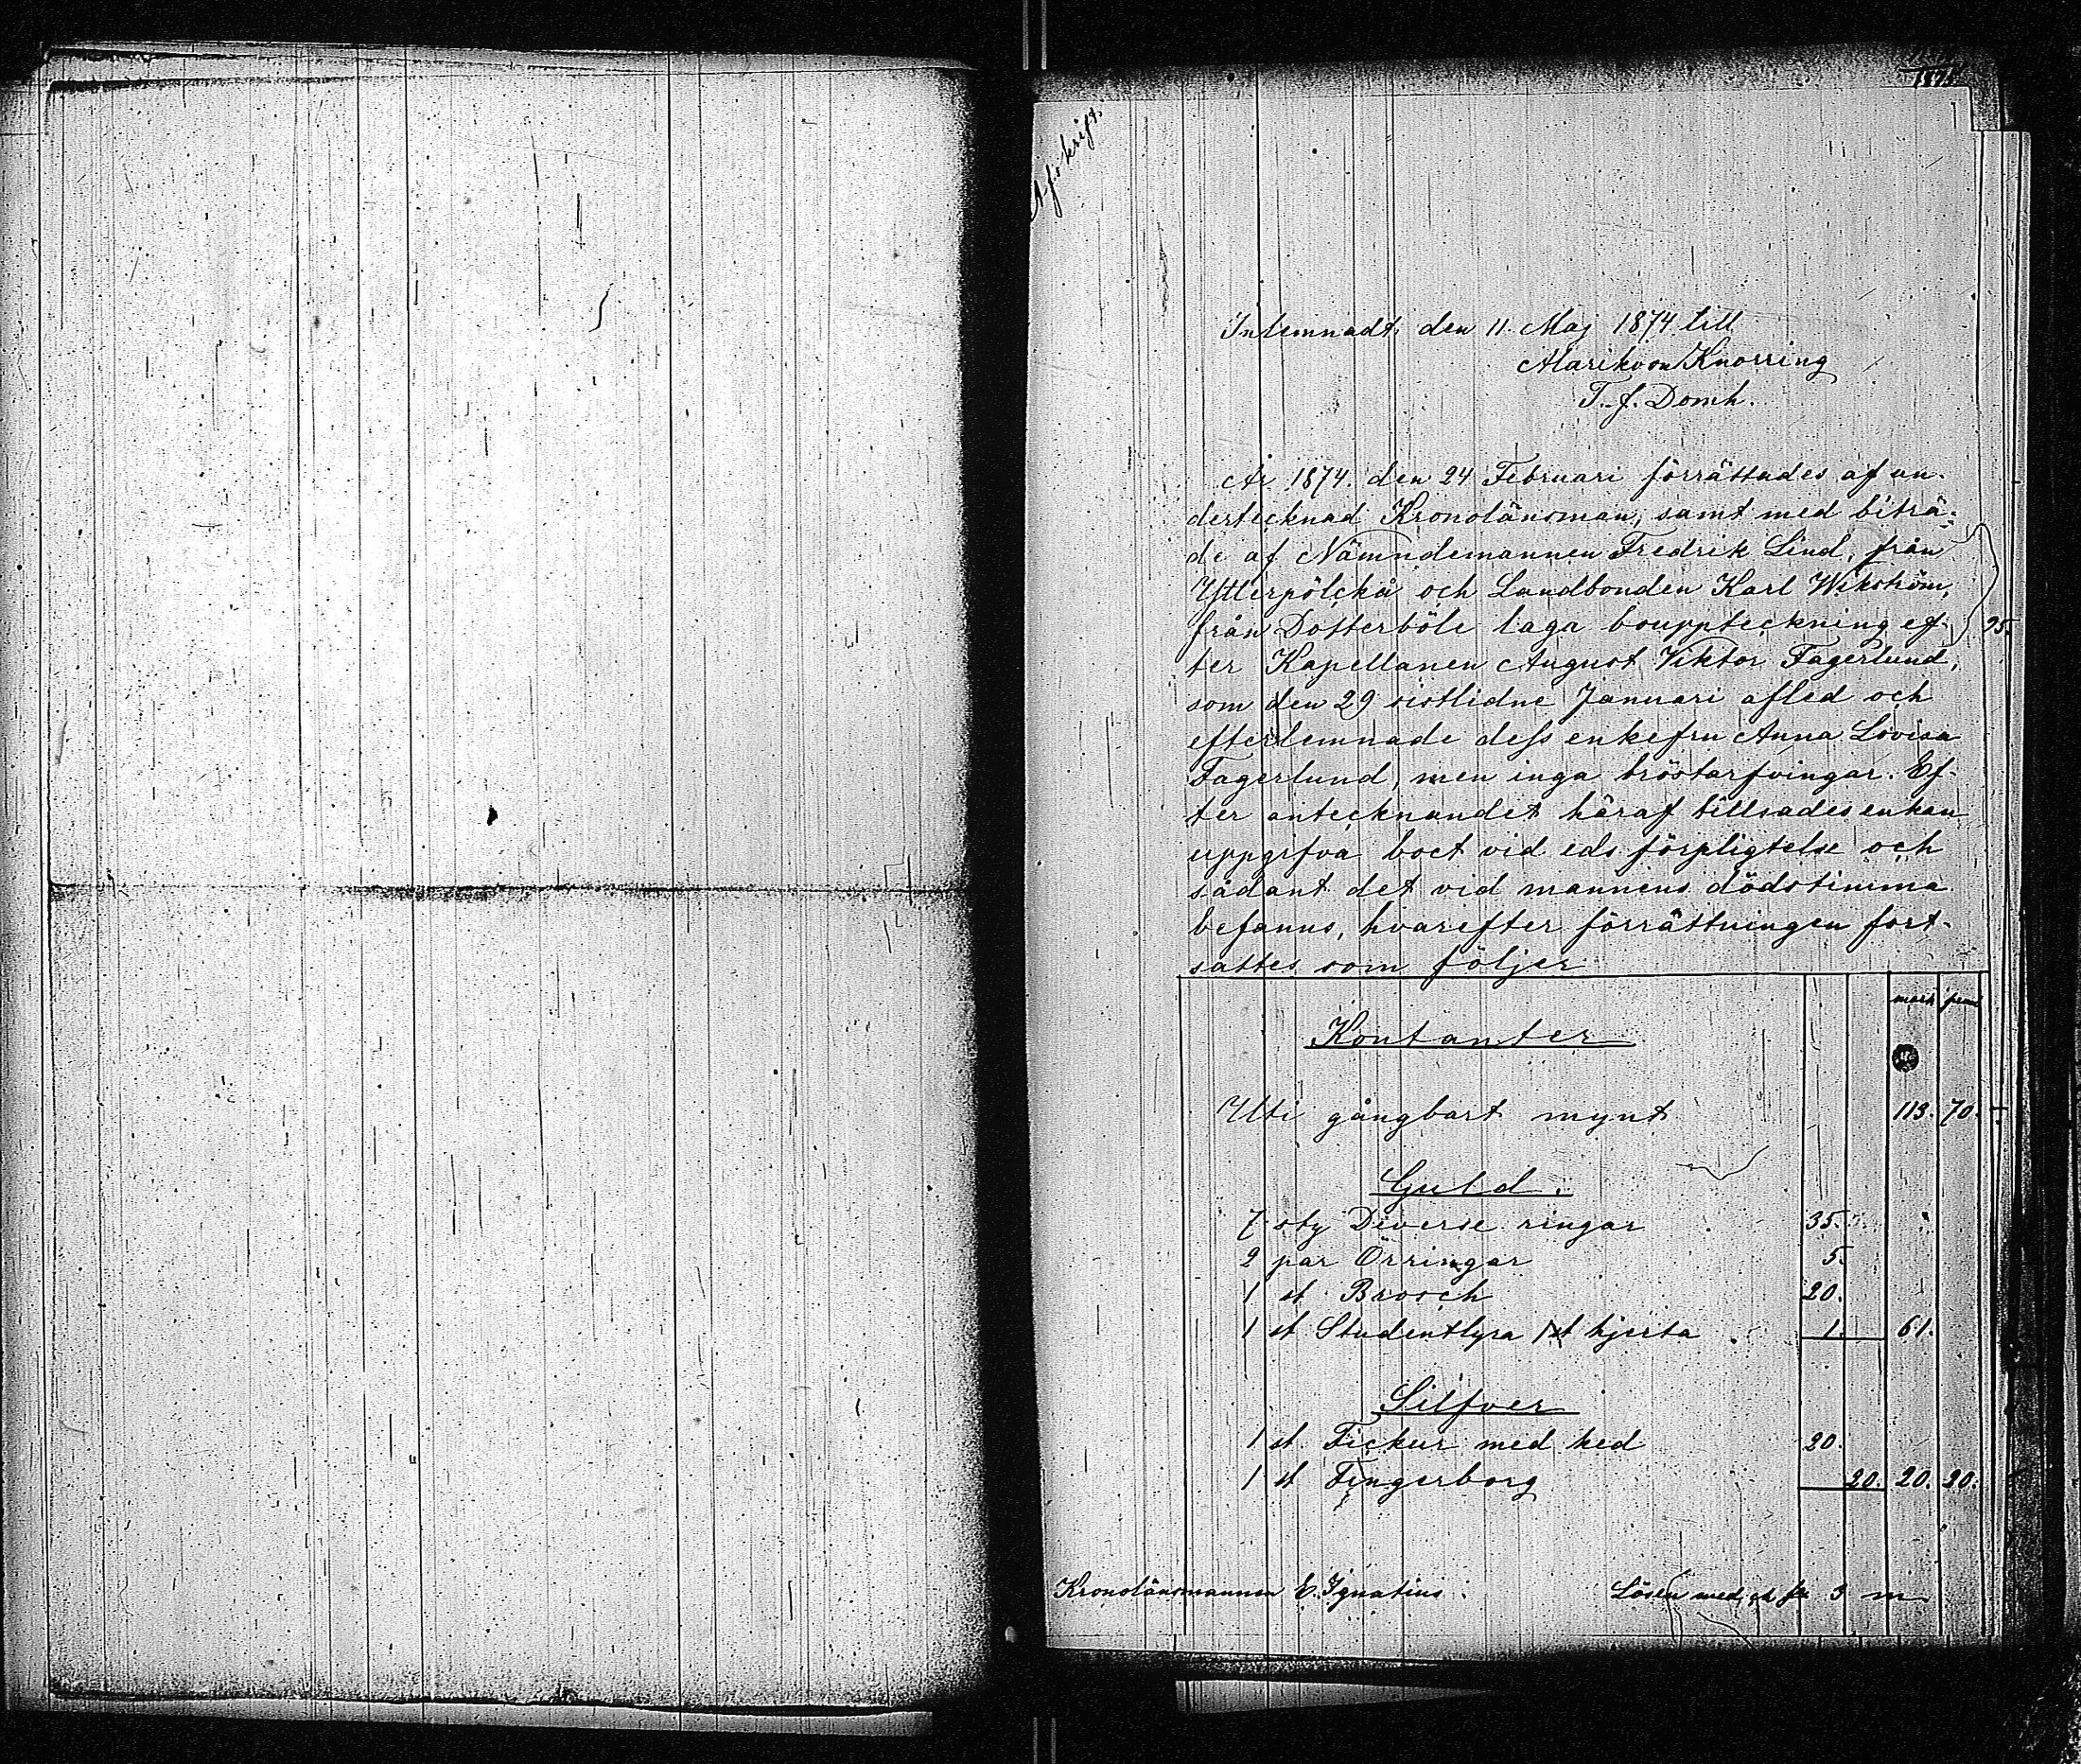 Afskrift.
Inlemnadt den 11. Maj 1874 till
Alarik von Knorring
T. f. Domh.
År 1874. den 24 Februari förrättades af un-
dertecknad Kronolänsman, samt med biträ-
de af Nämndemannen Fredrik Lind, från
Ytterpölckä och Landbonden Karl Wikström,
från Dosterböle laga bouppteckning ef-
ter Kapellanen August Viktor Fagerlund,
som den 29 sistlidne Januari afled och
efterlemnade dess enkefru Anna Lovisa
Fagerlund, men inga bröstarfvingar. Ef-
ter antecknandet häraf tillsades enkan
uppgifva boet vid eds förpligtelse och
sådant det vid mannens dödstimma
befanns, hvarefter förrättningen fort-
sattes som följer
mark penni
Kontanter
Uti gångbart mynt 113. 70.
Guld.
7 sty Diverse ringar 35.
2 par Örringar 5.
1 st Brosch 20.
1 st Studentlyra 1 st hjerta 1. 61.
Silfver
1 st. Fickur med ked 20.
1 st Fingerborg 20. 20. 20.
Kronolänsmannen E. Ignatius. Lösen med 3 m